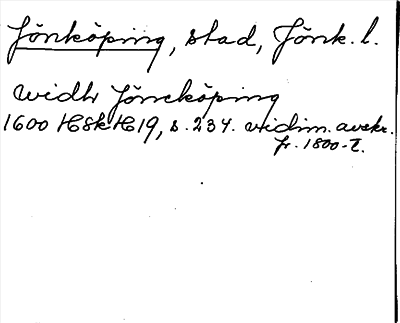 Jönköping, stad, Jönk. l.
widh Jöneköping
1600 HSk H 19, s. 234. vidim. avskr.
fr. 1800-t.